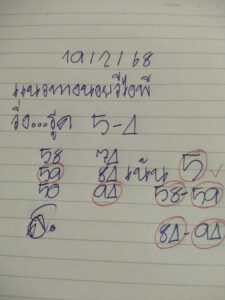 19/2/68
แนวทางหวยวีไอพี
วิ่ง...รูด 5-4
58 74
59 84 เน้น 5
50 94 58-59
84-94